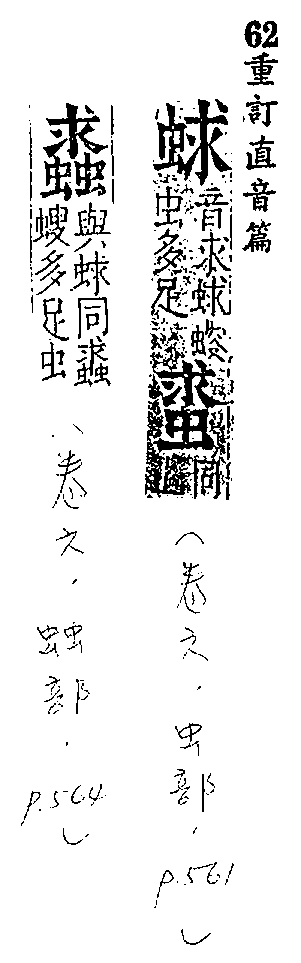 62重訂直音篇
蛷 音求蛷螋虫多足 同上
（卷六．虫部．p.561）
與蛷同 螋多足虫
（卷六．䖵部．p.564）